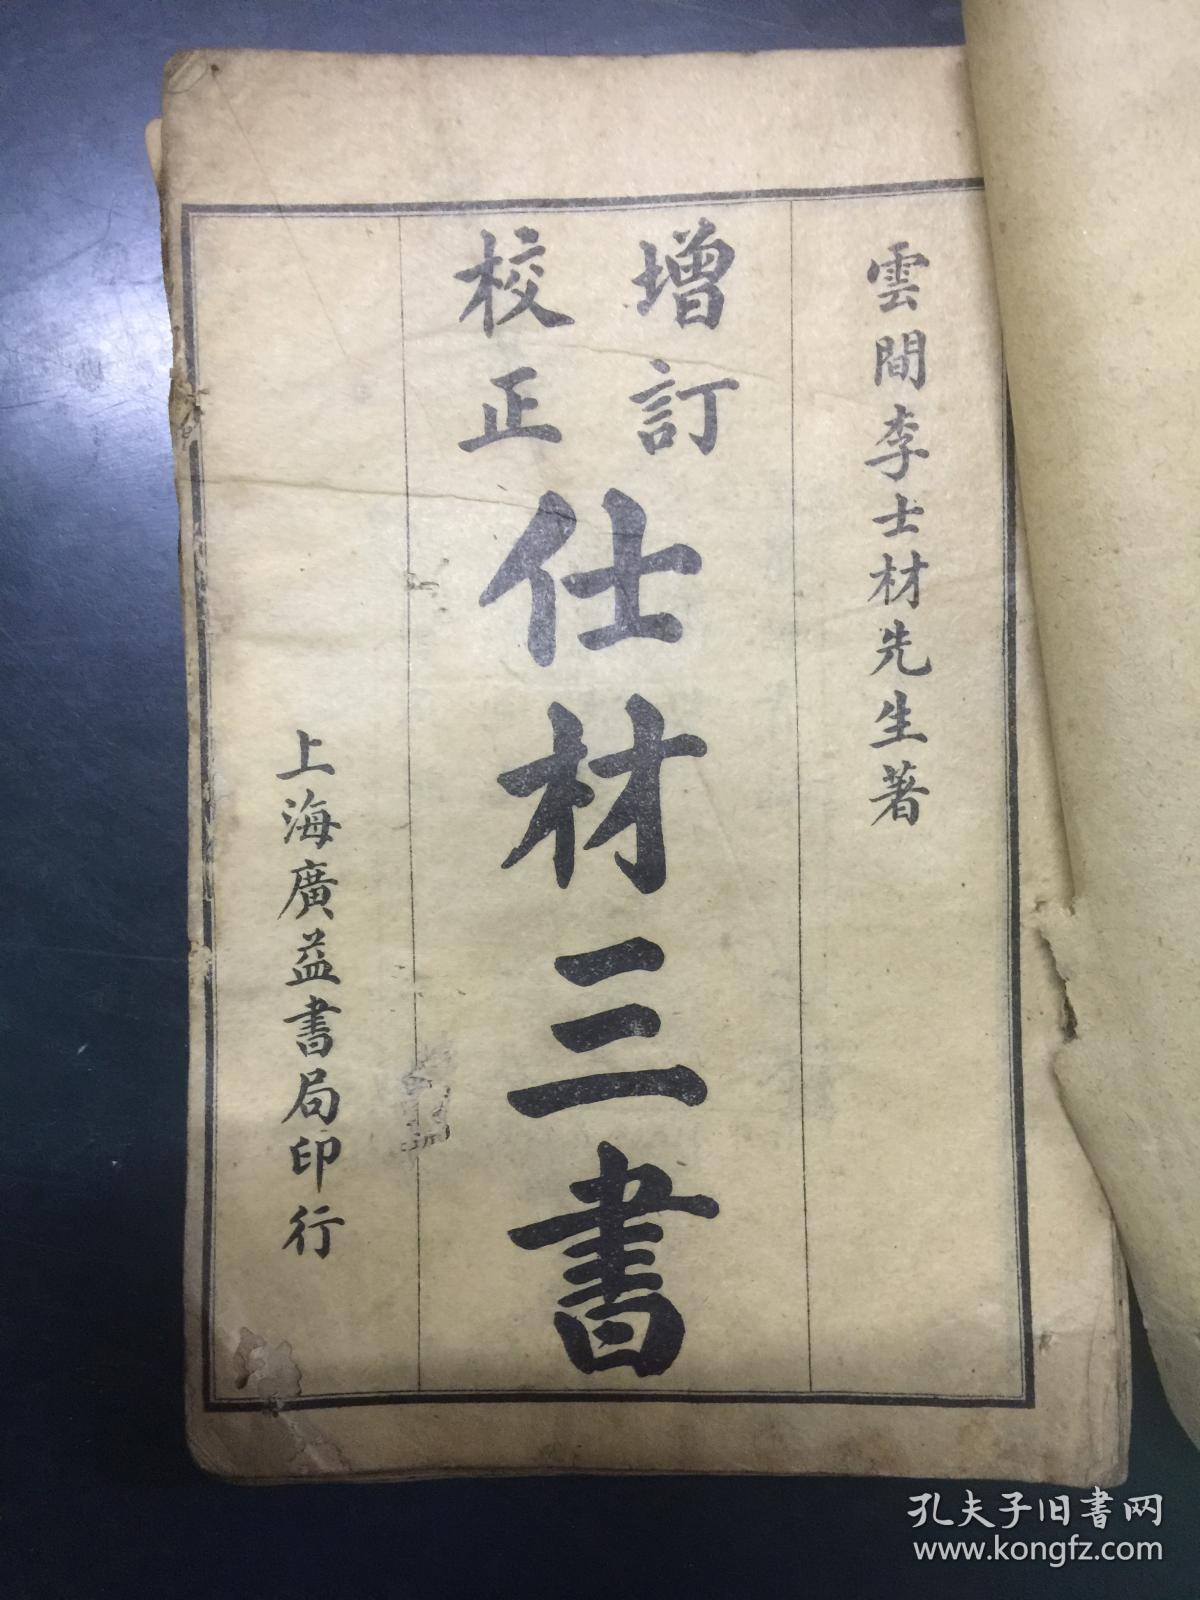 雲間李士材先生著
增訂
校正
仕材三書
上海廣益書局印行
孔夫子旧书网
www.kongfz.com